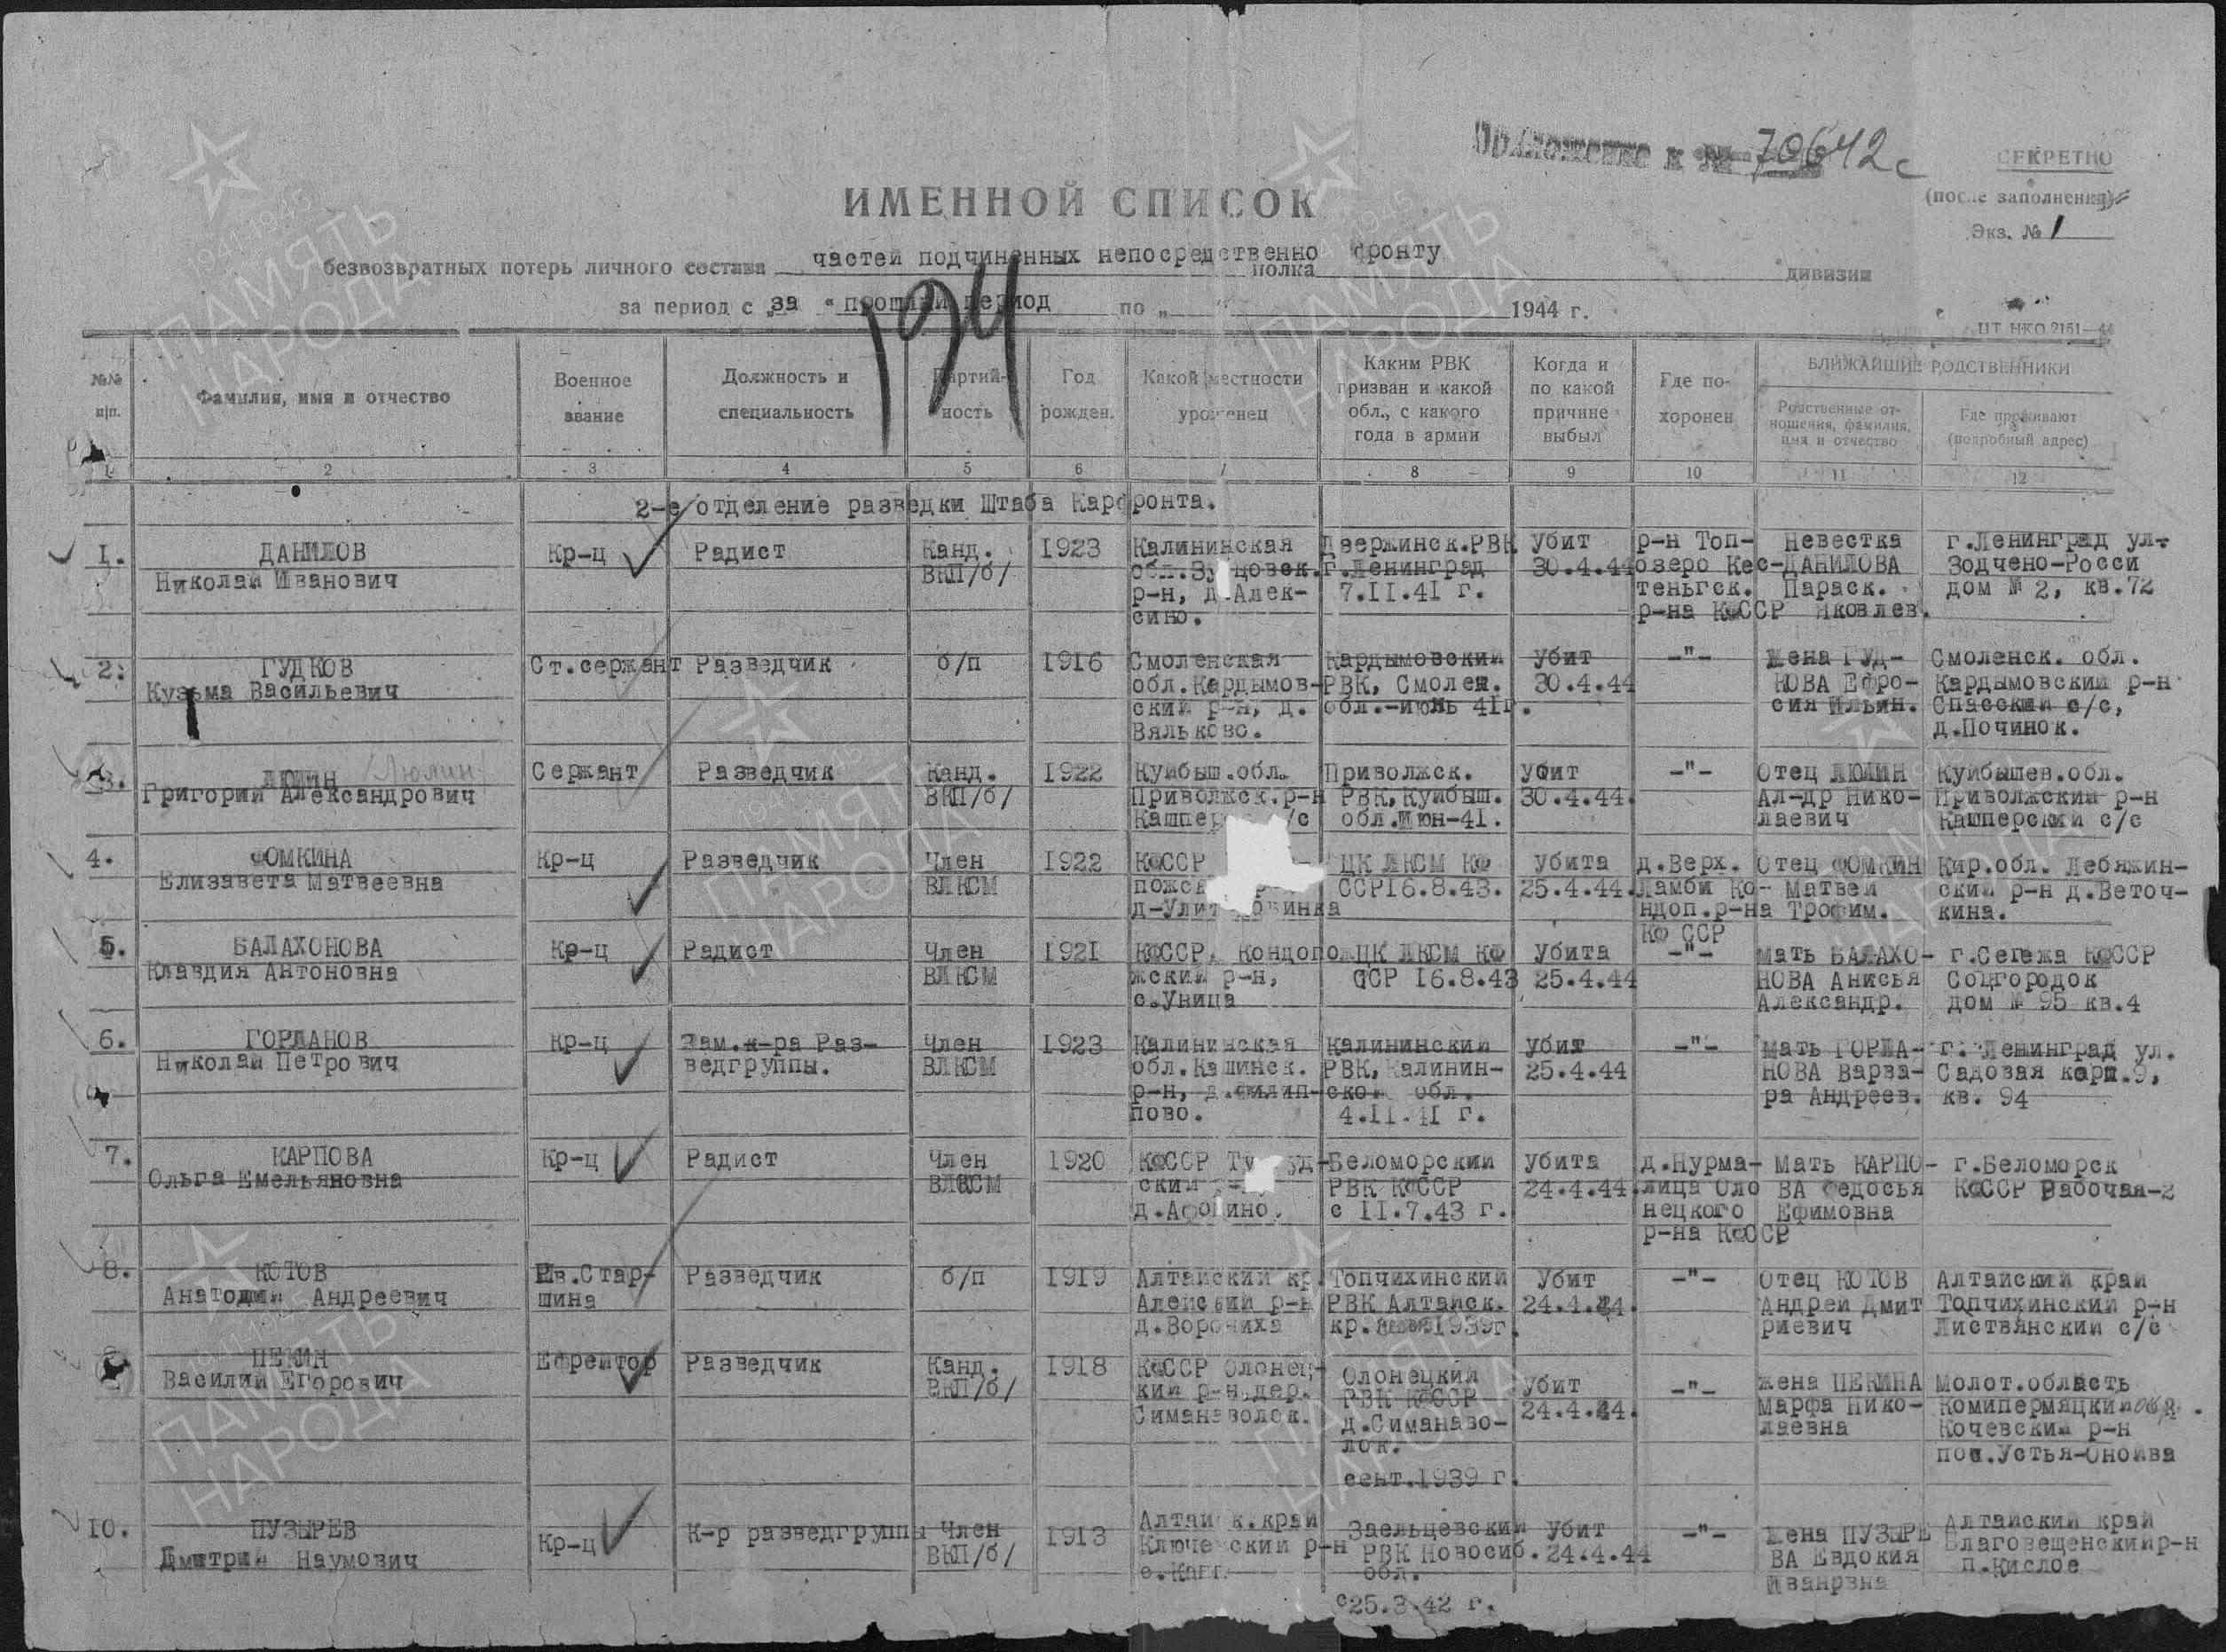 Приложение к № 70642с
СЕКРЕТНО
(после заполнения)
Экз. № 1
ИМЕННОЙ СПИСОК
безвозвратных потерь личного состава частей подчиненных непосредственно фронту полка дивизии
за период с „за “ прошлый период по „ “ 1944 г.
194
ЦТ НКО 2151—44
№№ п|п.
Фамилия, имя и отчество
Военное звание
Должность и специальность
Партий- ность
Год рожден.
Какой местности уроженец
Каким РВК призван и какой обл., с какого года в армии
Когда и по какой причине выбыл
Где по- хоронен
БЛИЖАЙШИЕ РОДСТВЕННИКИ
Родственные от- ношения, фамилия, имя и отчество
Где проживают (подробный адрес)
1 2 3 4 5 6 7 8 9 10 11 12
2-е отделение разведки Штаба Карфронта.
1. ДАНИЛОВ Кр-ц Радист Канд. 1923 Калининская Дзержинск.РВК Убит р-н Топ- Невестка г.Ленинград ул.
Николай Иванович ВКП/б/ обл. г.Ленинград 30.4.44 озеро Кес- ДАНИЛОВА Зодчено-Росси
р-н, д.Алек- 7.11.41 г. теньгск. Параск. дом № 2, кв.72
сино. р-на КФССР Яковлев.
2. ГУДКОВ Ст.сержант Разведчик б/п 1916 Смоленская Кардымовский Убит -"- Жена ГУД- Смоленск. обл.
Кузьма Васильевич обл.Кардымов- РВК, Смолен. 30.4.44 КОВА Ефро- Кардымовский р-н
ский р-н, д. обл.-июнь 41г. сия Ильин. Спасский с/с,
Вяльково. д.Починок.
3. ЛЮЛИН Люлин Сержант Разведчик Канд. 1922 Куйбыш.обл. Приволжск. Убит -"- Отец ЛЮЛИН Куйбышев.обл.
Григорий Александрович ВКП/б/ Приволжск.р-н РВК,Куйбыш. 30.4.44. Ал-др Нико- Приволжский р-н
Кашпер с/с обл.Июн-41. лаевич Кашперский с/с
4. ФОМКИНА Кр-ц Разведчик Член 1922 КФССР ЦК ЛКСМ КФ Убита д.Верх. Отец ФОМКИН Кир.обл. Лебяжин-
Елизавета Матвеевна ВЛКСМ ССР16.8.43. 25.4.44. Ламби Ко- Матвей ский р-н д.Веточ-
ндоп.р-на Трофим. кина.
КФ ССР
5. БАЛАХОНОВА Кр-ц Радист Член 1921 КФССР, Кондопо- ЦК ЛКСМ КФ Убита -"- Мать БАЛАХО- г.Сегежа КФССР
Клавдия Антоновна ВЛКСМ жский р-н, ССР 16.8.43 25.4.44 НОВА Анисья Соцгородок
с.Уница Александр. дом № 95 кв.4
6. ГОРЛАНОВ Кр-ц Зам.к-ра Раз- Член 1923 Калининская Калининский Убит -"- Мать ГОРЛА- г. Ленинград ул.
Николай Петрович ведгруппы. ВЛКСМ обл.Калинск. РВК,Калинин- 25.4.44 НОВА Варва- Садовая корп.9,
р-н, д.Филип- ской обл. ра Андреев. кв. 94
пово. 4.11.41 г.
7. КАРПОВА Кр-ц Радист Член 1920 КФССР Беломорский Убита д.Нурма- Мать КАРПО- г.Беломорск
Ольга Емельяновна ВЛКСМ ский РВК КФССР 24.4.44. лица Оло ВА Федосья КФССР Рабочая-2
д.Афонино. с 11.7.43 г. нецкого Ефимовна
р-на КФССР
8. КОТОВ Гв.Стар- Разведчик б/п 1919 Алтайский кр. Топчихинский Убит -"- Отец КОТОВ Алтайский край
Анатолий Андреевич шина Алейский р-н РВК Алтайск. 24.4.44. Андрей Дмит Топчихинский р-н
д.Ворониха кр. 1939г. риевич Листвянский с/с
9. ПЕКИН Ефрейтор Разведчик Канд. 1918 КФССР Олонец- Олонецкий Убит -"- Жена ПЕКИНА Молот.область
Василий Егорович ВКП/б/ кий р-н,дер. РВК КФССР 24.4.44. Марфа Нико- Комипермяцкий окр.
Симанаволок. д.Симанаво- лаевна Кочевский р-н
лок. пос.Устья-Онолва
сент.1939 г.
10. ПУЗЫРЕВ Кр-ц К-р разведгруппы Член 1913 Алтайск.край Заельцевский Убит -"- Жена ПУЗЫРЕ Алтайский край
Дмитрий Наумович ВКП/б/ Ключевский р-н РВК Новосиб. 24.4.44 ВА Евдокия Благовещенский р-н
обл. Ивановна п.Кислое
с25.3.42 г.
ПАМЯТЬ НАРОДА